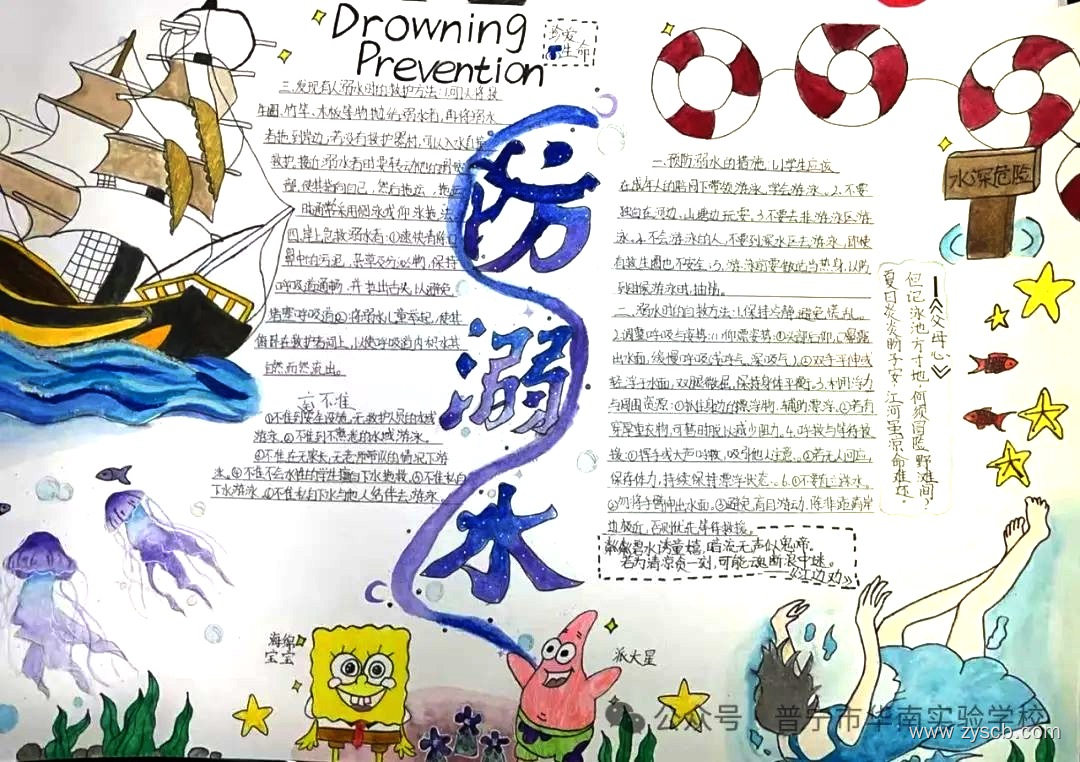 Drowning
Prevention
珍爱
生命
防溺水
三.发现有人溺水时的救护方法:1.可以将救
生圈、竹竿、木板等物抛给溺水者,再将溺水
者拖到岸边;若没有救护器材,可以入水直接
救护.接近溺水者时要转动他的
使其背向自己,然后拖运。拖运
时通常采用侧泳或仰泳拖法
四.岸上急救溺水者:①迅速清除
鼻中的污泥、杂草及分泌物,保持
呼吸道通畅,并拉出舌头,以避免
堵塞呼吸道②将溺水儿童举起,使其
俯卧在救护者肩上,以使呼吸道内积水
自然而然流出。
六不准
①不准到没有设施、无救护人员的水域
游泳。②不准到不熟悉的水域游泳。
③不准在无家长、无老师带队的情况下游
泳。④不准不会水性的学生擅自下水施救。⑤不准私自
下水游泳。⑥不准私自下水与他人结伴去游泳。
一.预防溺水的措施 1.小学生应该
在成年人的陪同下带救游泳,学会游泳。2.不要
独自在河边、山塘边玩耍。3.不要去非游泳区游
泳。4.不会游泳的人,不要到深水区去游泳,即使
有救生圈也不安全。5.游泳前要做适当热身,以防
到时候游泳时抽筋。
二.溺水时的自救方法:1.保持冷静,避免慌乱。
2.调整呼吸与姿势:1.仰漂姿势:①头部后仰,口鼻露
出水面,缓慢呼吸(浅呼气、深吸气)。②双手手伸或
轻浮于水面,双腿微屈,保持身体平衡。3.利用浮力
与周围资源:①抓住身边的漂浮物,辅助漂浮。②若有
穿厚重衣物,可暂时脱以减少阻力。4.呼救与等待救
援:①挥手或大声呼救,吸引他人注意。②若无人回应,
保存体力,持续保持漂浮状态。
②勿将手臂伸出水面。③避免盲目游动,除非距离岸
边较近,否则优先等待救援。
水深危险
《父母心》
夏日炎炎盼子安,江河虽凉命难还。
但记泳池方寸地,何须冒险野滩间?
粼粼碧水诱童嬉,暗流无声似鬼啼。
若为清凉贪一刻,可能魂断浪中迷。
——《江边劝》
海绵
宝宝
派大星
公众号 · 普宁市华南实验学校
www.zyscb.com